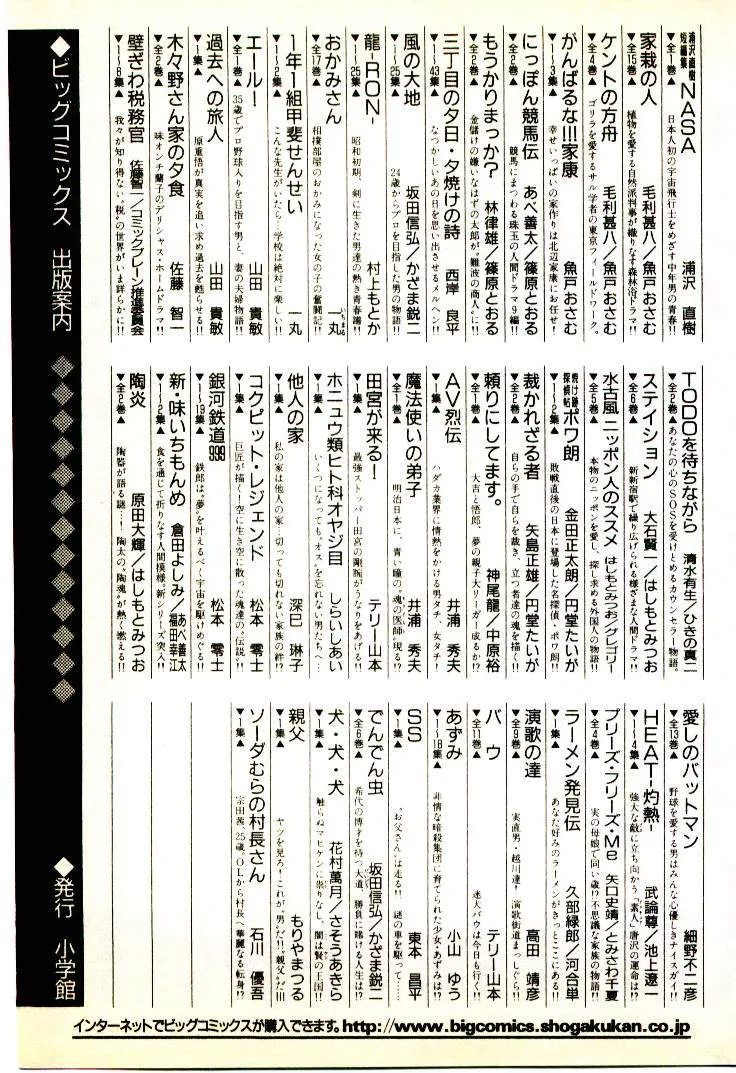 浦沢直樹短編集 NASA 浦沢 直樹
▼全1巻▲ 日本人初の宇宙飛行士をめざす中年男の青春!!
家栽の人 毛利甚八/魚戸おさむ
▼全15巻▲ 植物を愛する自然派判事が織りなす森林浴ドラマ!!
ケントの方舟 毛利甚八/魚戸おさむ
▼全4巻▲ ゴリラを愛するサル学者の東京フィールドワーク。
がんばるな!!!家康 魚戸おさむ
▼1〜3集▲ 幸せいっぱいの家作りは北辺家康にお任せ!
にっぽん競馬伝 あべ善太/篠原とおる
▼全2巻▲ 競馬にまつわる珠玉の人間ドラマ9編!!
もうかりまっか? 林律雄/篠原とおる
▼全2巻▲ 金儲けの嫌いなはずの太郎が〝難波の商人〟に!!
三丁目の夕日・夕焼けの詩 西岸 良平
▼1〜43集▲ なつかしいあの日を思い出させるメルヘン!!
風の大地 坂田信弘/かざま鋭二
▼1〜25集▲ 24歳からプロを目指した男の物語!!
龍-RON- 村上もとか
▼1〜25集▲ 昭和初期、剣に生きた男達の熱き青春譜!!
おかみさん 一丸
▼全17巻▲ 相撲部屋のおかみになった女の子の奮闘記!!
1年1組甲斐せんせい 一丸
▼1〜2集▲ こんな先生がいたら…学校は絶対に楽しい!!
エール! 山田 貴敏
▼全1巻▲ 35歳でプロ野球入りを目指す男と、妻の夫婦物語!!
過去への旅人 山田 貴敏
▼1集▲ 原重悟が真実を追い求め過去を甦らせる!!
木々野さん家の夕食 佐藤 智一
▼全2巻▲ 味オンチ蘭子のデリシャス・ホームドラマ!!
壁ぎわ税務官 佐藤智一/コミックブレーン推進委員会
▼1〜8集▲ 我々が知り得ない〝税〟の世界がいま詳らかに!!
TODOを待ちながら 清水有生/ひきの真二
▼全2巻▲ あなたの心のSOSを受けとめるカウンセラー物語。
ステイション 大石賢一/はしもとみつお
▼全6巻▲ 新新宿駅で繰り広げられる様ざまな人間ドラマ!!
水古風 ニッポン人のススメ はしもとみつお/グレゴリー
▼全5巻▲ 本物のニッポンを愛し、探し求める外国人の物語!!
焼け跡探偵帖 ポワ朗 金田正太朗/円堂たいが
▼1〜2集▲ 敗戦直後の日本に登場した名探偵、ポワ朗!!
裁かれざる者 矢島正雄/円堂たいが
▼全2巻▲ 自らの手で自らを裁き、立つ若者達の魂を描く!!
頼りにしてます。 神尾龍/中原裕
▼全1巻▲ 大吉と悟郎、夢の親子大リーガー成るか!?
AV烈伝 井浦 秀夫
▼1集▲ ハダカ業界に情熱をかける男タチ、女タチ!
魔法使いの弟子 井浦 秀夫
▼全1巻▲ 明治日本に、青い瞳の〝魂の医師〟現る!?
田宮が来る! テリー山本
▼1集▲ 最強ストッパー田宮の剛腕がうなりをあげる!!
ホニュウ類ヒト科オヤジ目 しらいしあい
▼1集▲ いくつになっても〝オス〟を忘れない男たちへ…
他人の家 深巳 琳子
▼1集▲ 私の家は他人の家…切っても切れない家族の絆!?
コクピット・レジェンド 松本 零士
▼1集▲ 巨匠が描く!空に生き空に散った魂達の〝伝説〟!!
銀河鉄道999 松本 零士
▼1〜19集▲ 鉄郎は〝夢〟を叶えるべく宇宙を駆けめぐる!!
新・味いちもんめ 倉田よしみ/あべ善太 福田幸江
▼1〜2集▲ 食を通じて折りなす人間模様。新シリーズ突入!!
陶炎 原田大輝/はしもとみつお
▼全2巻▲ 陶器が語る謎…!陶太の〝陶魂〟が熱く燃える!!
愛しのバットマン 細野不二彦
▼全13巻▲ 野球を愛する男はみんな心優しきナイスガイ!!
HEAT-灼熱- 武論尊/池上遼一
▼1〜4集▲ 強大な敵に立ち向かう〝素人〟唐沢の運命は!?
プリーズ・フリーズ・Me 矢口史靖/とみさわ千夏
▼全4巻▲ 実の母娘で同い歳!?不思議な家族の物語!!
ラーメン発見伝 久部緑郎/河合単
▼1集▲ あなた好みのラーメンがきっとここにある!!
演歌の達 高田 靖彦
▼全9巻▲ 実直男・越川達!演歌街道まっしぐら!!
バウ テリー山本
▼全11巻▲ 迷犬バウは今日も行く!!
あずみ 小山 ゆう
▼1〜18集▲ 非情な暗殺集団に育てられた少女・あずみは!?
SS 東本 昌平
▼1集▲ 〝お父さん〟は走る!!謎の車を駆って……
でんでん虫 坂田信弘/かざま鋭二
▼全6巻▲ 希代の博才を持つ大道、勝負に賭ける人生は!?
犬・犬・犬 花村萬月/さそうあきら
▼1集▲ 触らぬマヒケンに祟りなし、闇は賢の王国!!
親父 もりやまつる
▼1集▲ ヤツを見ろ!これが〝男〟だ!!〝親父〟だ!!!
ソーダむらの村長さん 石川 優吾
▼1集▲ 宗田茜、25歳。OLから村長へ華麗なる転身!?
◆ビッグコミックス 出版案内 ◆発行 小学館
インターネットでビッグコミックスが購入できます。http://www.bigcomics.shogakukan.co.jp